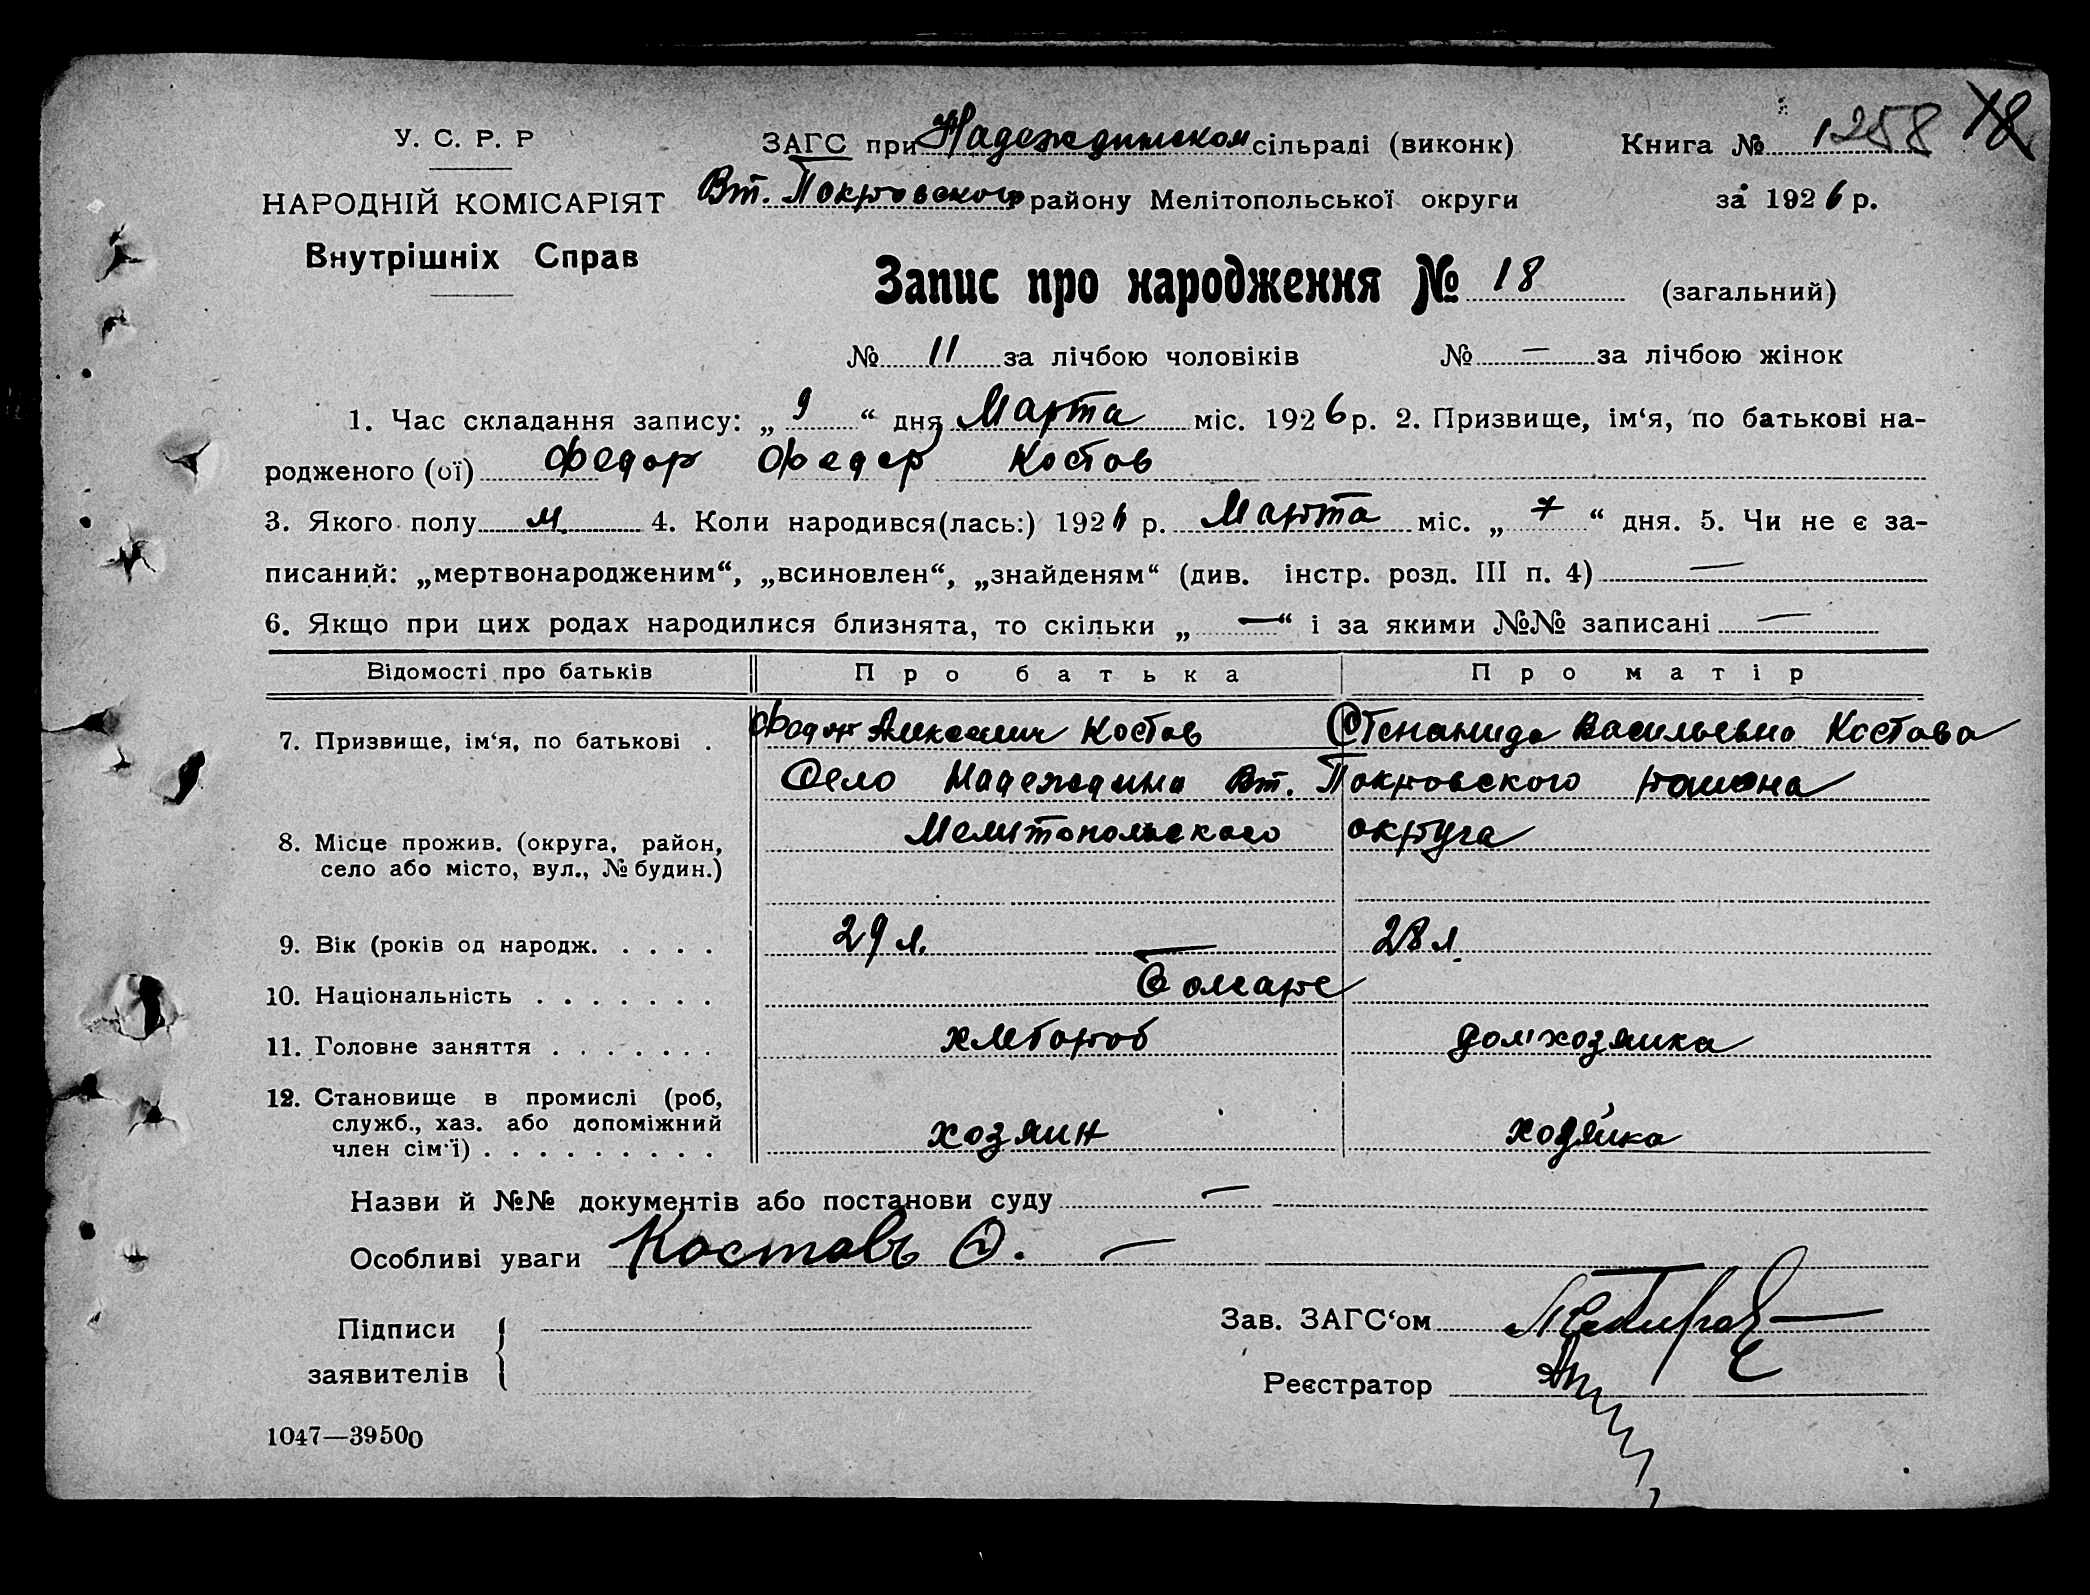 У. С. Р. Р
НАРОДНІЙ КОМІСАРІЯТ
Внутрішніх Справ
ЗАГС при Надеждинском сільраді (виконк)
Вт. Покровского району Мелітопольської округи
Книга № 1 258 18
за 1926 р.
Запис про народження № 18 (загальний)
№ 11 за лічбою чоловіків № — за лічбою жінок
1. Час складання запису: „ 9 “ дня Марта міс. 1926 р. 2. Призвище, ім‘я, по батькові на-
родженого (ої) Федор Федор Костов
3. Якого полу м. 4. Коли народився(лась:) 1926 р. Марта міс. „ 7 “ дня. 5. Чи не є за-
писаний: „мертвонародженим“, „всиновлен“, „знайденям“ (див. інстр. розд. III п. 4) —
6. Якщо при цих родах народилися близнята, то скільки „ — “ і за якими №№ записані —
Відомості про батьків Про батька Про матір
7. Призвище, ім‘я, по батькові . Федор Алексеевич Костов Степанида Васильевна Костова
Село Надеждино Вт. Покровского района
Мелитопольского округа
8. Місце прожив. (округа, район,
село або місто, вул., № будин.)
9. Вік (років од народж. . . . . 29 л. 28 л
10. Національність . . . . . . . Болгаре
11. Головне заняття . . . . . . . хлебороб домхозяйка
12. Становище в промислі (роб,
служб., хаз. або допоміжний
член сім‘ї) . . . . . . . . . хозяин хозяйка
Назви й №№ документів або постанови суду —
Особливі уваги Костовъ Ѳ. —
Підписи
заявителів
Зав. ЗАГС‘ом
Реєстратор
1047—39500